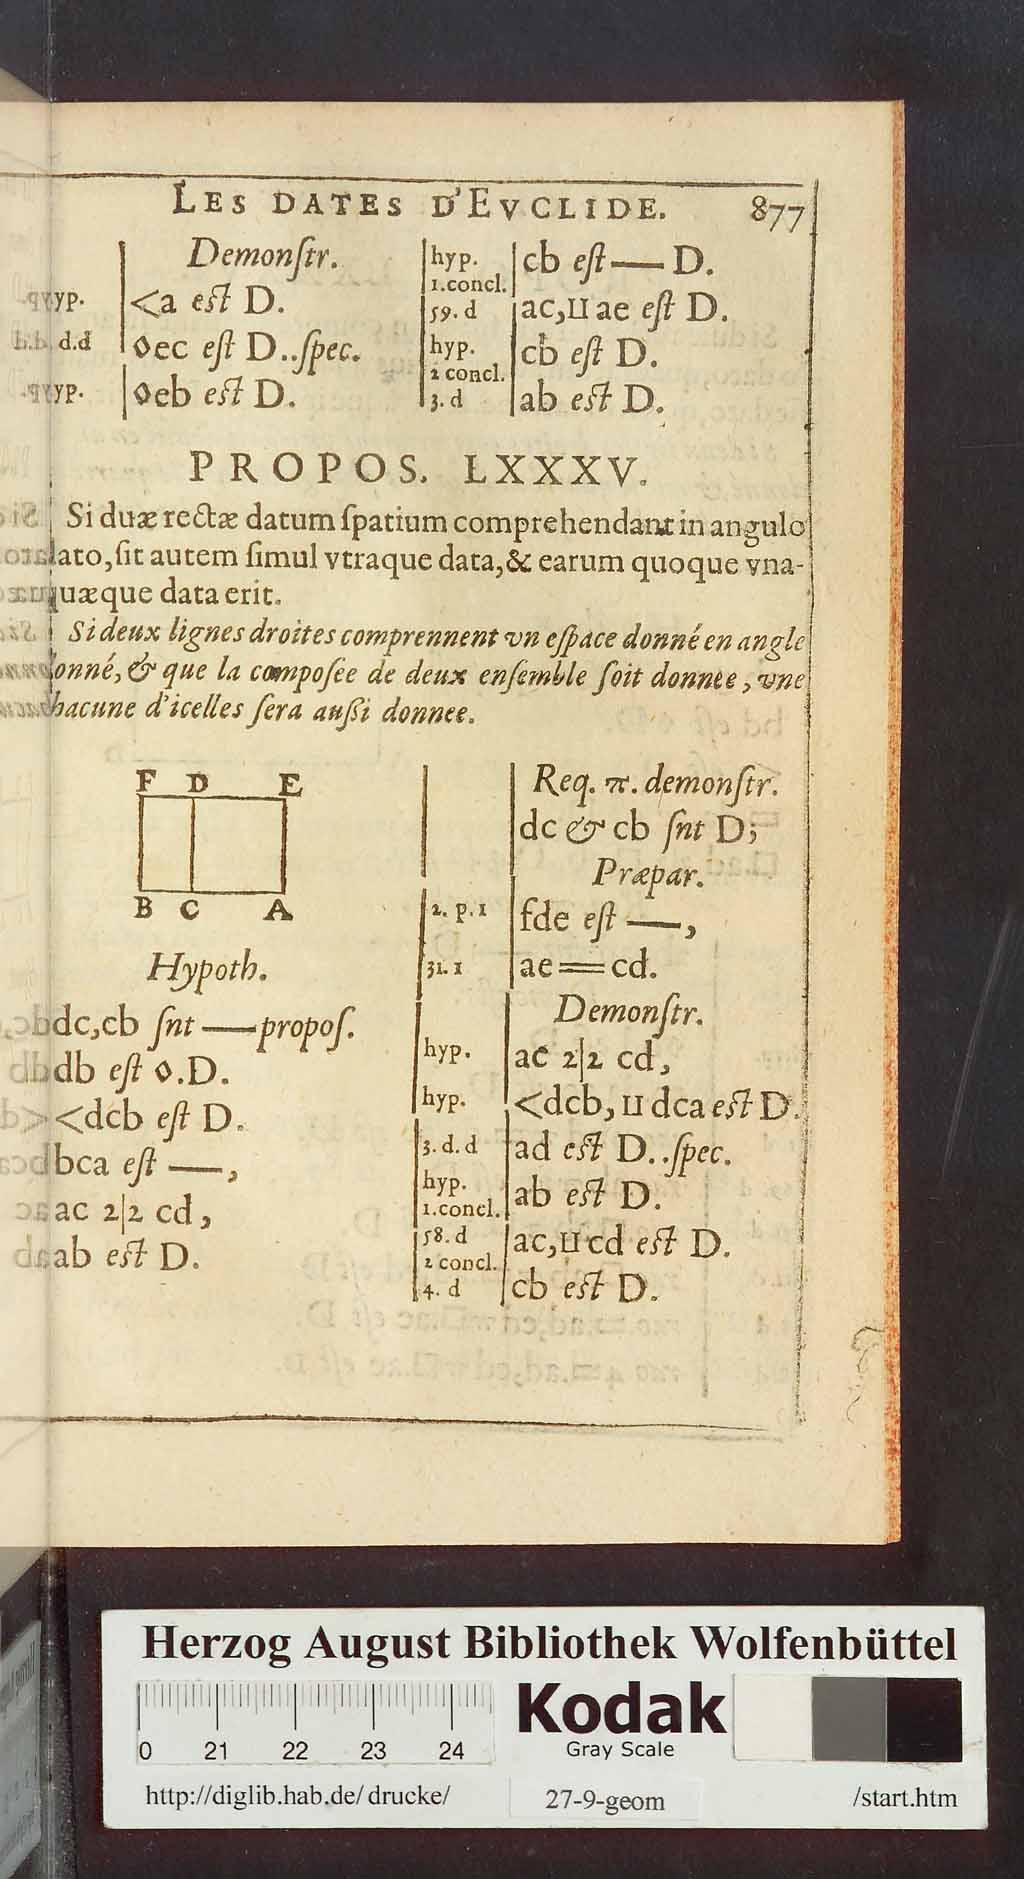 LES DATES D'EVCLIDE. 877
Demonſtr.
yp. <a eſt D.
d.d ◊ec eſt D..ſpec.
yp. ◊eb eſt D.
hyp. cb eſt — D.
1.concl.
59. d ac,ıı ae eſt D.
hyp. cb eſt D.
2 concl.
3. d ab eſt D.
PROPOS. LXXXV.
Si duæ rectæ datum ſpatium comprehendant in angulo
dato, ſit autem ſimul vtraque data, & earum quoque vna-
quæque data erit.
Si deux lignes droites comprennent vn eſpace donné en angle
donné, & que la compoſée de deux enſemble ſoit donnée, vne
chacune d'icelles ſera auſſi donnee.
F D E
B C A
Hypoth.
dc,cb ſnt — propoſ.
db eſt ◊.D.
<dcb eſt D.
bca eſt —,
ac 2|2 cd,
ab eſt D.
Req. π. demonſtr.
dc & cb ſnt D;
Præpar.
2. p.1 fde eſt —,
31. 1 ae = cd.
Demonſtr.
hyp. ac 2|2 cd,
hyp. <dcb, ıı dca eſt D.
3. d. d ad eſt D..ſpec.
hyp. ab eſt D.
1.concl.
58. d ac,ıı cd eſt D.
2 concl.
4. d cb eſt D.
Herzog August Bibliothek Wolfenbüttel
0 21 22 23 24
Kodak
Gray Scale
http://diglib.hab.de/drucke/ 27-9-geom /start.htm